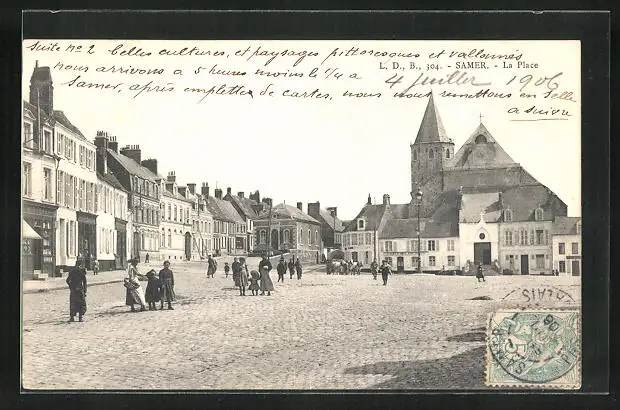 suite no 2 belles cultures, et paysages pittoresques et vallonnés
L. D., B., 304. - SAMER. - La Place
nous arrivons a 5 heures moins le 1/4 a
4 juillet 1906
Samer, après emplettes de cartes, nous nous remettons en selle
a suivre